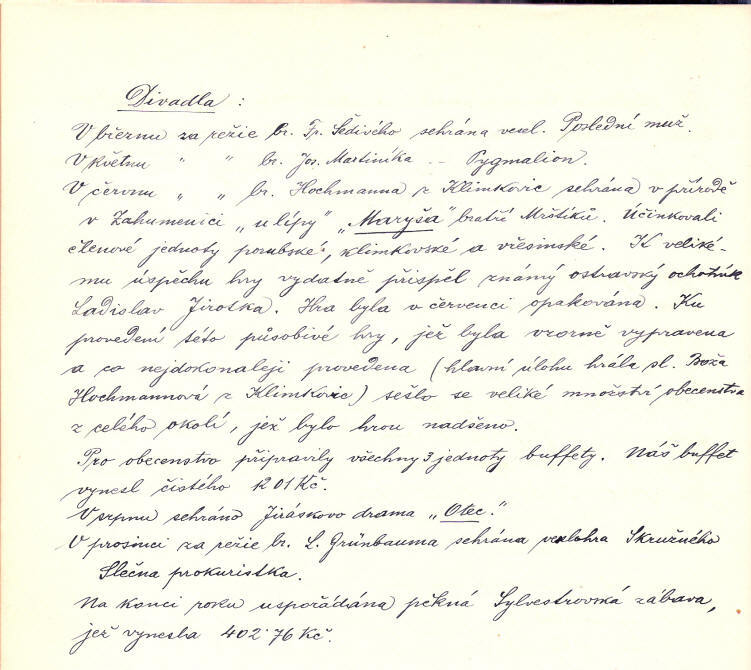 Divadla :
V březnu za režie br. Fr. Šedivého sehrána vesel. Poslední muž.
V květnu " " br. Jos. Martiníka -- Pygmalion.
V červnu " " br. Hochmanna z Klimkovic sehrána v přírodě
v Zahumenici „u lípy" „Maryša" bratří Mrštíků. Účinkovali
členové jednoty porubské, klimkovské a vřesinské. K veliké-
mu úspěchu hry vydatně přispěl známý ostravský ochotník
Ladislav Jirotka. Hra byla v červenci opakována. Ku
provedení této působivé hry, jež byla vzorně vypravena
a co nejdokonaleji provedena (hlavní úlohu hrála sl. Boža
Hochmannová z Klimkovic) sešlo se veliké množství obecenstva
z celého okolí, jež bylo hrou nadšeno.
Pro obecenstvo připravily všechny 3 jednoty buffety. Náš buffet
vynesl čistého 1201 Kč.
V srpnu sehráno Jiráskovo drama „Otec."
V prosinci za režie br. L. Grünbauma sehrána veselohra Skružného
Slečna prokuristka.
Na konci roku uspořádána pěkná Sylvestrovská zábava,
jež vynesla 402·76 Kč.